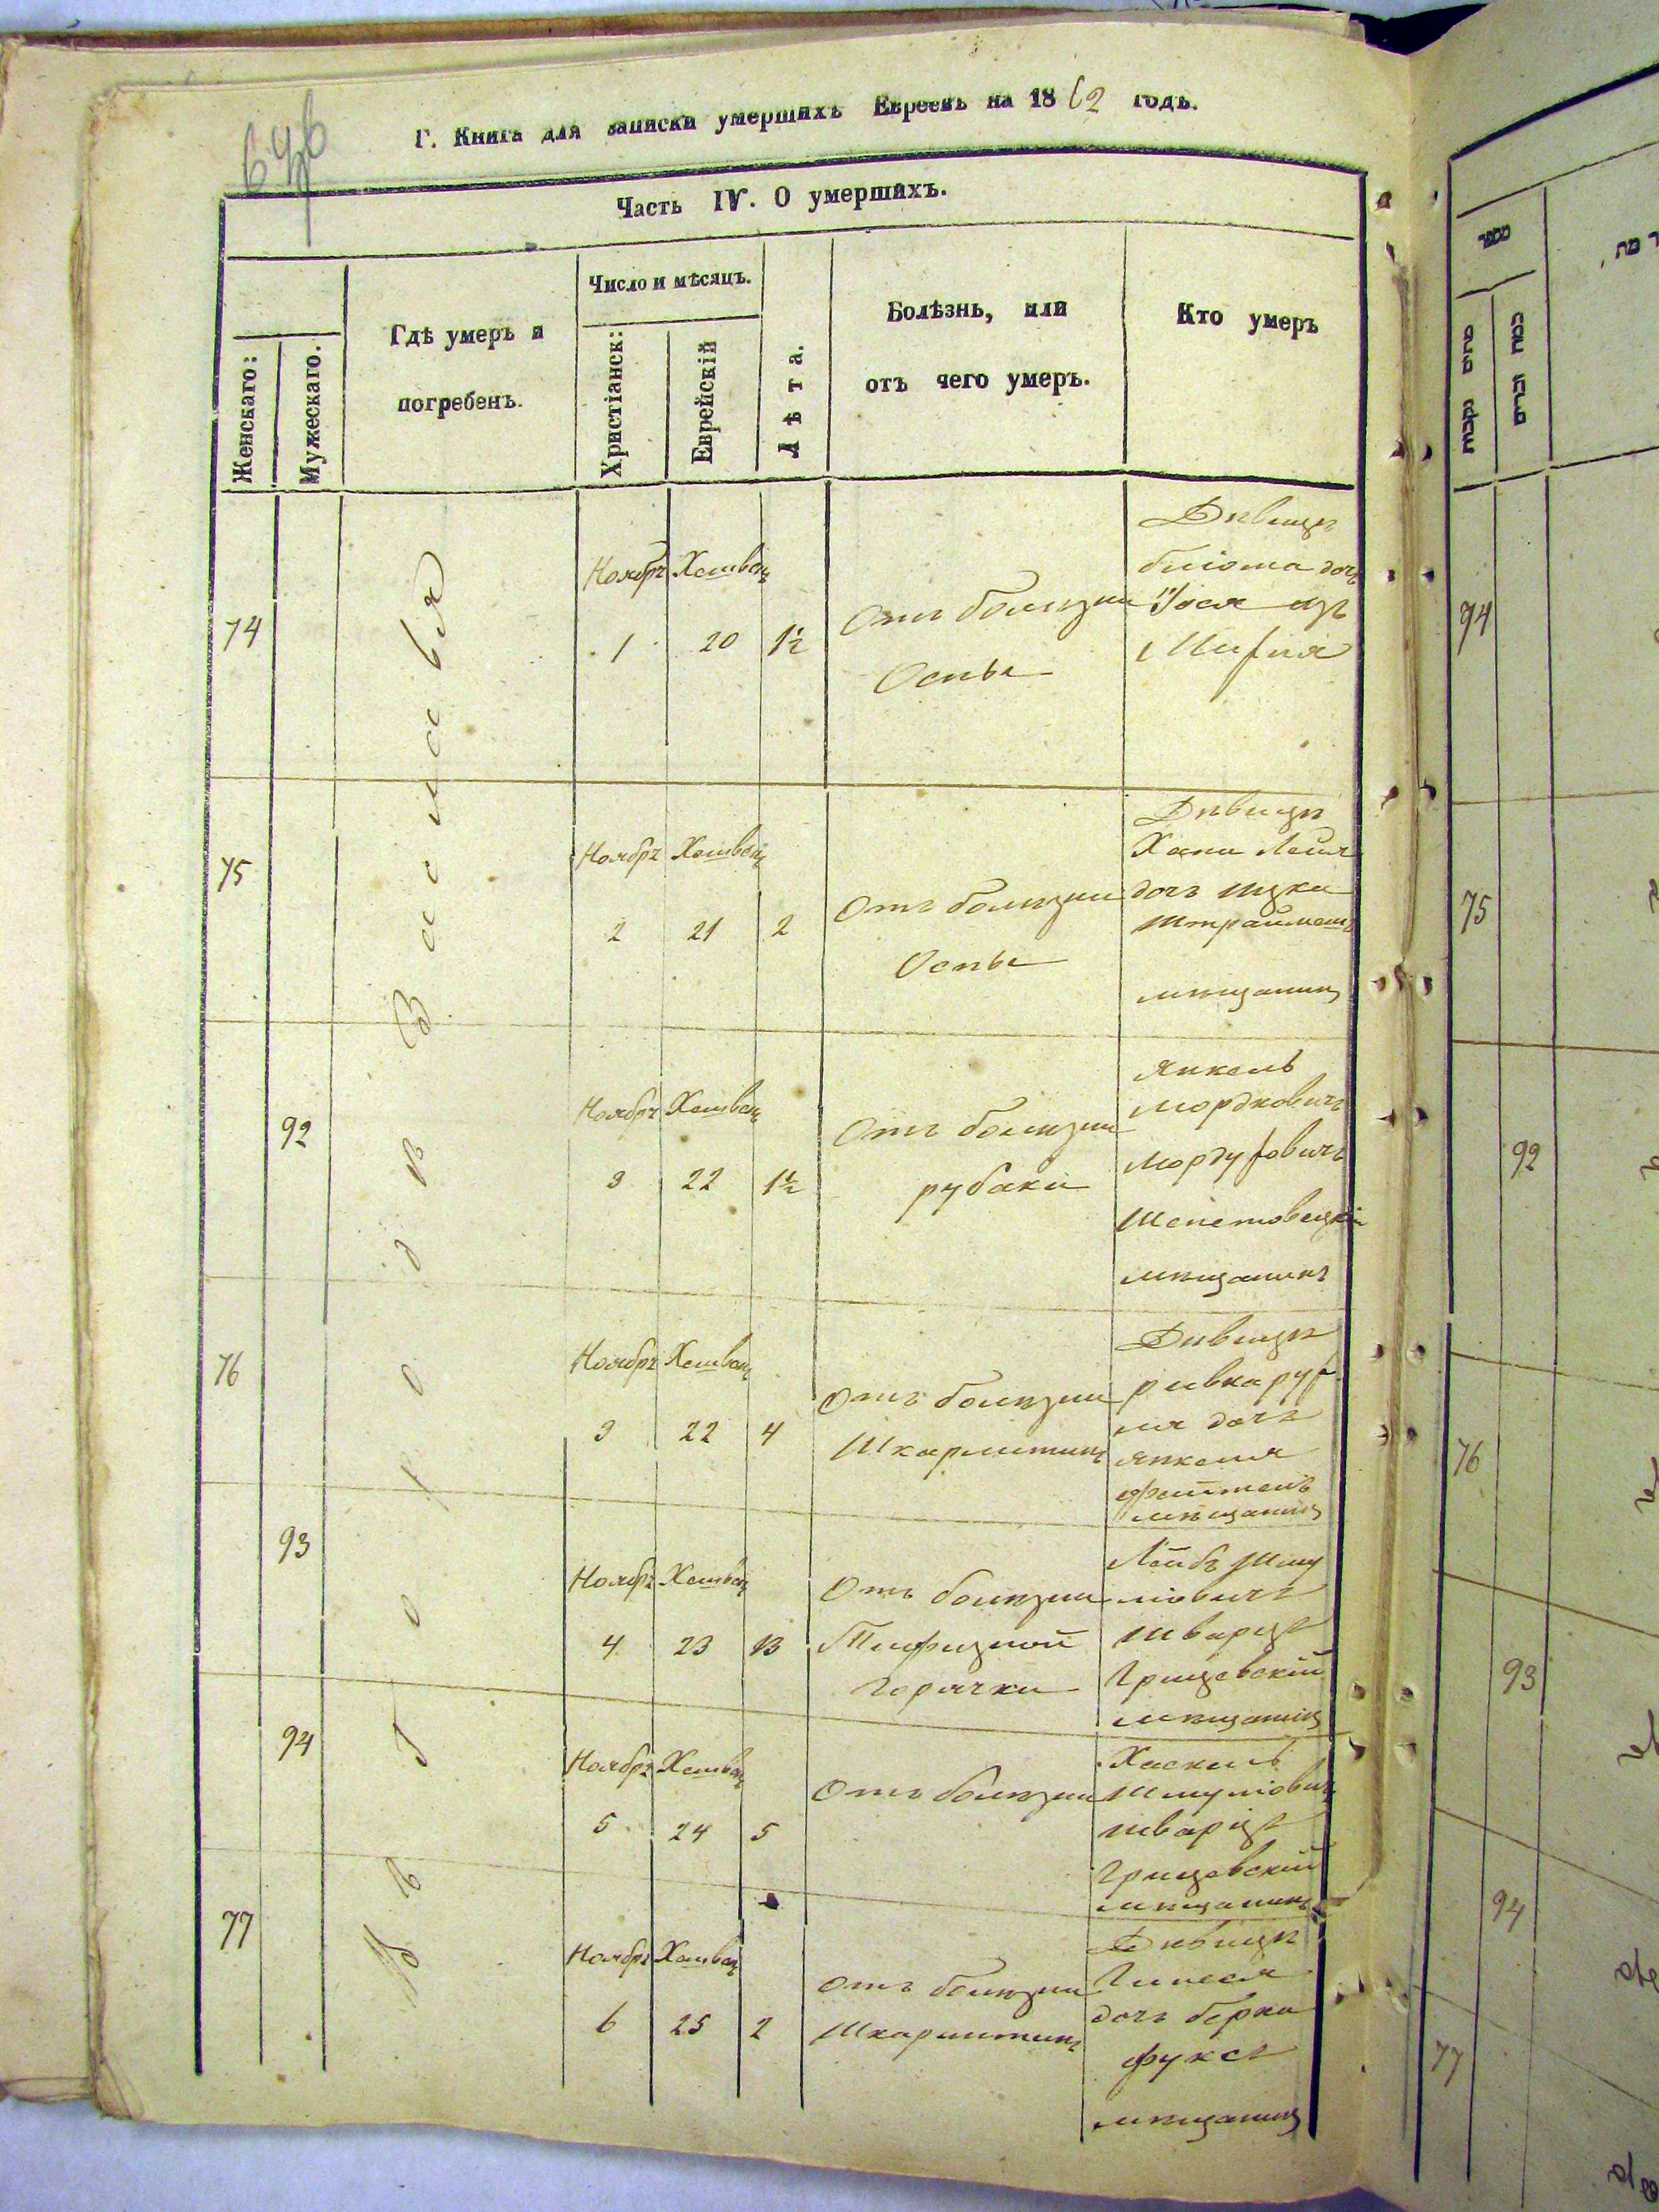 Г. Книга для записки умершихъ Евреевъ на 1862 годъ.
Часть IV. О умершихъ.
Женскаго:
Мужескаго.
Гдѣ умеръ и
погребенъ.
Число и мѣсяцъ.
Христіанск:
Еврейскій
Лѣта.
Болѣзнь, или
отъ чего умеръ.
Кто умеръ
Въ Городѣ Заславля
74
Ноябрь Хешвец
1 20 1½
Отъ болѣзни
Оспы
Дѣвица
дочь
75
Ноябрь Хешвец
2 21 2
Отъ болѣзни
Оспы
Дѣвица
Хана Лея
дочь Ицка
мѣщанин
92
Ноябрь Хешвец
3 22 1½
Отъ болѣзни
Янкель
Мордковичъ
Шепетовецкій
мѣщанинъ
76
Ноябрь Хешвец
3 22 4
Отъ болѣзни
Шкарлятины
Дѣвица
Ривка Рух
ля дочь
Янкеля
мѣщанин
93
Ноябрь Хешвец
4 23 13
Отъ болѣзни
Тифозной
Горячки
Лейбъ Шму
ліовичъ
Шварцъ
Грицевскій
мѣщанин
94
Ноябрь Хешвец
5 24 5
Отъ болѣзни
Хаскель
Шмуліович
Шварцъ
Грицевскій
мѣщанинъ
77
Ноябрь Хешвец
6 25 2
Отъ болѣзни
Шкарлятины
Дѣвица
Гинеся
дочь Берка
Фуксъ
мѣщанин
94
75
92
76
93
94
77